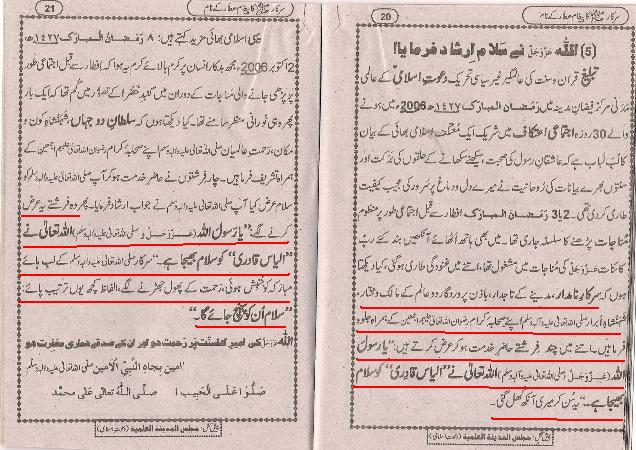 سرکار ﷺ کا پیغام عطار کے نام
20
(5) اللہ عَزَّوَجَلَّ نے سلام ارشاد فرمایا!
تبلیغِ قرآن و سنت کی عالمگیر غیر سیاسی تحریک دعوتِ اسلامی کے عالمی
مَدَنی مرکز فیضانِ مدینہ میں رَمَضانُ المبارَک ۱۴۲۷ھ 2006ء میں ہونے
والے 30 روزہ اجتماعی اعتکاف میں شریک ایک مُعتکف اسلامی بھائی کے بیان
کا لُبِّ لباب ہے کہ عاشقانِ رسول کی صحبت، سیکھنے سکھانے کے حلقوں کی برکت اور
سنتوں بھرے بیانات کی روحانیت نے میرے دل و دماغ پر سُرور کی عجیب کیفیت
طاری کر دی تھی۔ 2 یا 3 رمضان المبارک افطار سے قبل اجتماعی طور پر منظوم
مُناجات پڑھنے کا سلسلہ جاری تھا۔ میں بھی ہاتھ اُٹھائے آنکھیں بند کئے ربِّ
کائنات عَزَّوَجَلَّ کی مُناجات میں مشغول تھا، اتنے میں غنودگی طاری ہوگئی، کیا دیکھتا
ہوں کہ سرکارِ نامدار، مدینے کے تاجدار، باذنِ پروردگار دو عالم کے مالک و مختار،
شہنشاہِ ابرار صلی اللہ تعالیٰ علیہ والہ وسلم اپنے صحابہ کرام رضوان اللہ تعالیٰ علیہم اجمعین کے ہمراہ جلوہ
فرما ہیں۔ اتنے میں چند فرشتے حاضرِ خدمت ہو کر عرض کرتے ہیں: "یا رسول
اللہ (عَزَّوَجَلَّ و صلی اللہ تعالیٰ علیہ والہ وسلم) اللہ تعالیٰ نے "الیاس قادری" کو سلام
بھیجا ہے۔" یہ سُن کر میری آنکھ کھل گئی۔
پیش کش: مجلس المدینة العلمیة (دعوتِ اسلامی)
سرکار ﷺ کا پیغام عطار کے نام
21
یہی اسلامی بھائی مزید کہتے ہیں: ۸ رَمَضانُ المبارَک ۱۴۲۷ھ
2 اکتوبر 2006ء، مجھ بدکار انسان پر کرم بالائے کرم یہ ہوا کہ افطار سے قبل اجتماعی طور
پر پڑھی جانے والی مُناجات کے دوران میں گنبدِ خضرا کے تصوُّر میں گم تھا کہ ایک بار
پھر وہی نورانی منظر سامنے تھا۔ کیا دیکھتا ہوں کہ سلطانِ دو جہاں، شہنشاہِ کون و
مکان، رحمتِ عالمیان صلی اللہ تعالیٰ علیہ والہ وسلم اپنے صحابہ کرام رضوان اللہ تعالیٰ علیہم اجمعین کے
ہمراہ تشریف فرما ہیں۔ چار فرشتوں نے حاضرِ خدمت ہو کر آپ صلی اللہ تعالیٰ علیہ والہ وسلم کو
سلام عرض کیا آپ صلی اللہ تعالیٰ علیہ والہ وسلم نے جواب ارشاد فرمایا۔ پھر وہ فرشتے یہ عرض
کرنے لگے: "یا رسول اللہ (عَزَّوَجَلَّ و صلی اللہ تعالیٰ علیہ والہ وسلم) اللہ تعالیٰ نے
"الیاس قادری" کو سلام بھیجا ہے۔" سرکار صلی اللہ تعالیٰ علیہ والہ وسلم کے لب ہائے
مبارکہ کو جُنبش ہوئی، رحمت کے پھول جھڑنے لگے، الفاظ کچھ یوں ترتیب پائے:
"سلام اُن کو پہنچ جائے گا۔"
اللہ عَزَّوَجَلَّ کی امیرِ اَہلسنّت پر رَحمت ہو اور ان کے صدقے ہماری مغفرت ہو
امین بجاہ النبی الامین صلی اللہ تعالیٰ علیہ والہ وسلم
صَلُّوا عَلَی الْحَبِیب! صَلَّی اللہُ تَعَالٰی عَلٰی مُحَمَّد
پیش کش: مجلس المدینة العلمیة (دعوتِ اسلامی)